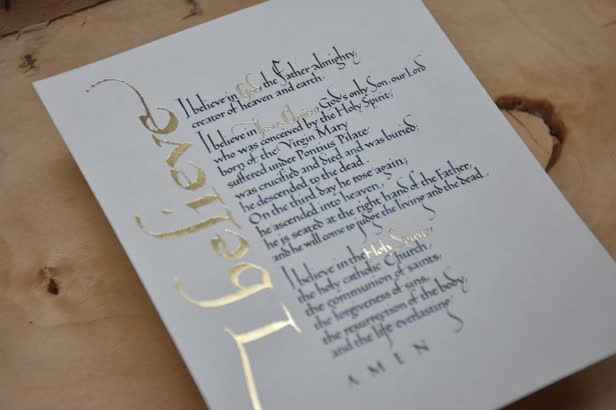 I believe
I believe in God, the Father Almighty,
creator of heaven and earth.
I believe in Jesus Christ, God's only Son, our Lord
who was conceived by the Holy Spirit,
born of the Virgin Mary
suffered under Pontius Pilate
was crucified and died and was buried;
he descended to the dead..
On the third day he rose again,
he ascended into heaven,
he is seated at the right hand of the Father,
and he will come to judge the living and the dead..
I believe in the Holy Spirit,
the holy catholic Church,
the communion of saints,
the forgiveness of sins,
the resurrection of the body,
and the life everlasting
AMEN